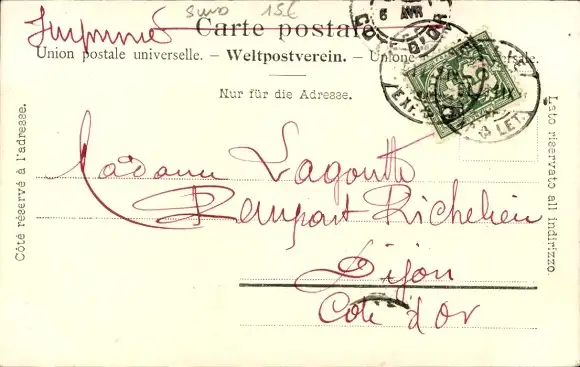 suno 15€
Imprimé
Carte postale
6 AVR
COTE D'OR
Union postale universelle. - Weltpostverein. - Unione
Nur für die Adresse.
EXP.
LET.
Côté réservé à l'adresse.
Lato riservato all indirizzo.
Madame Lagoutte
Rempart Richelieu
Dijon
Côte d'or